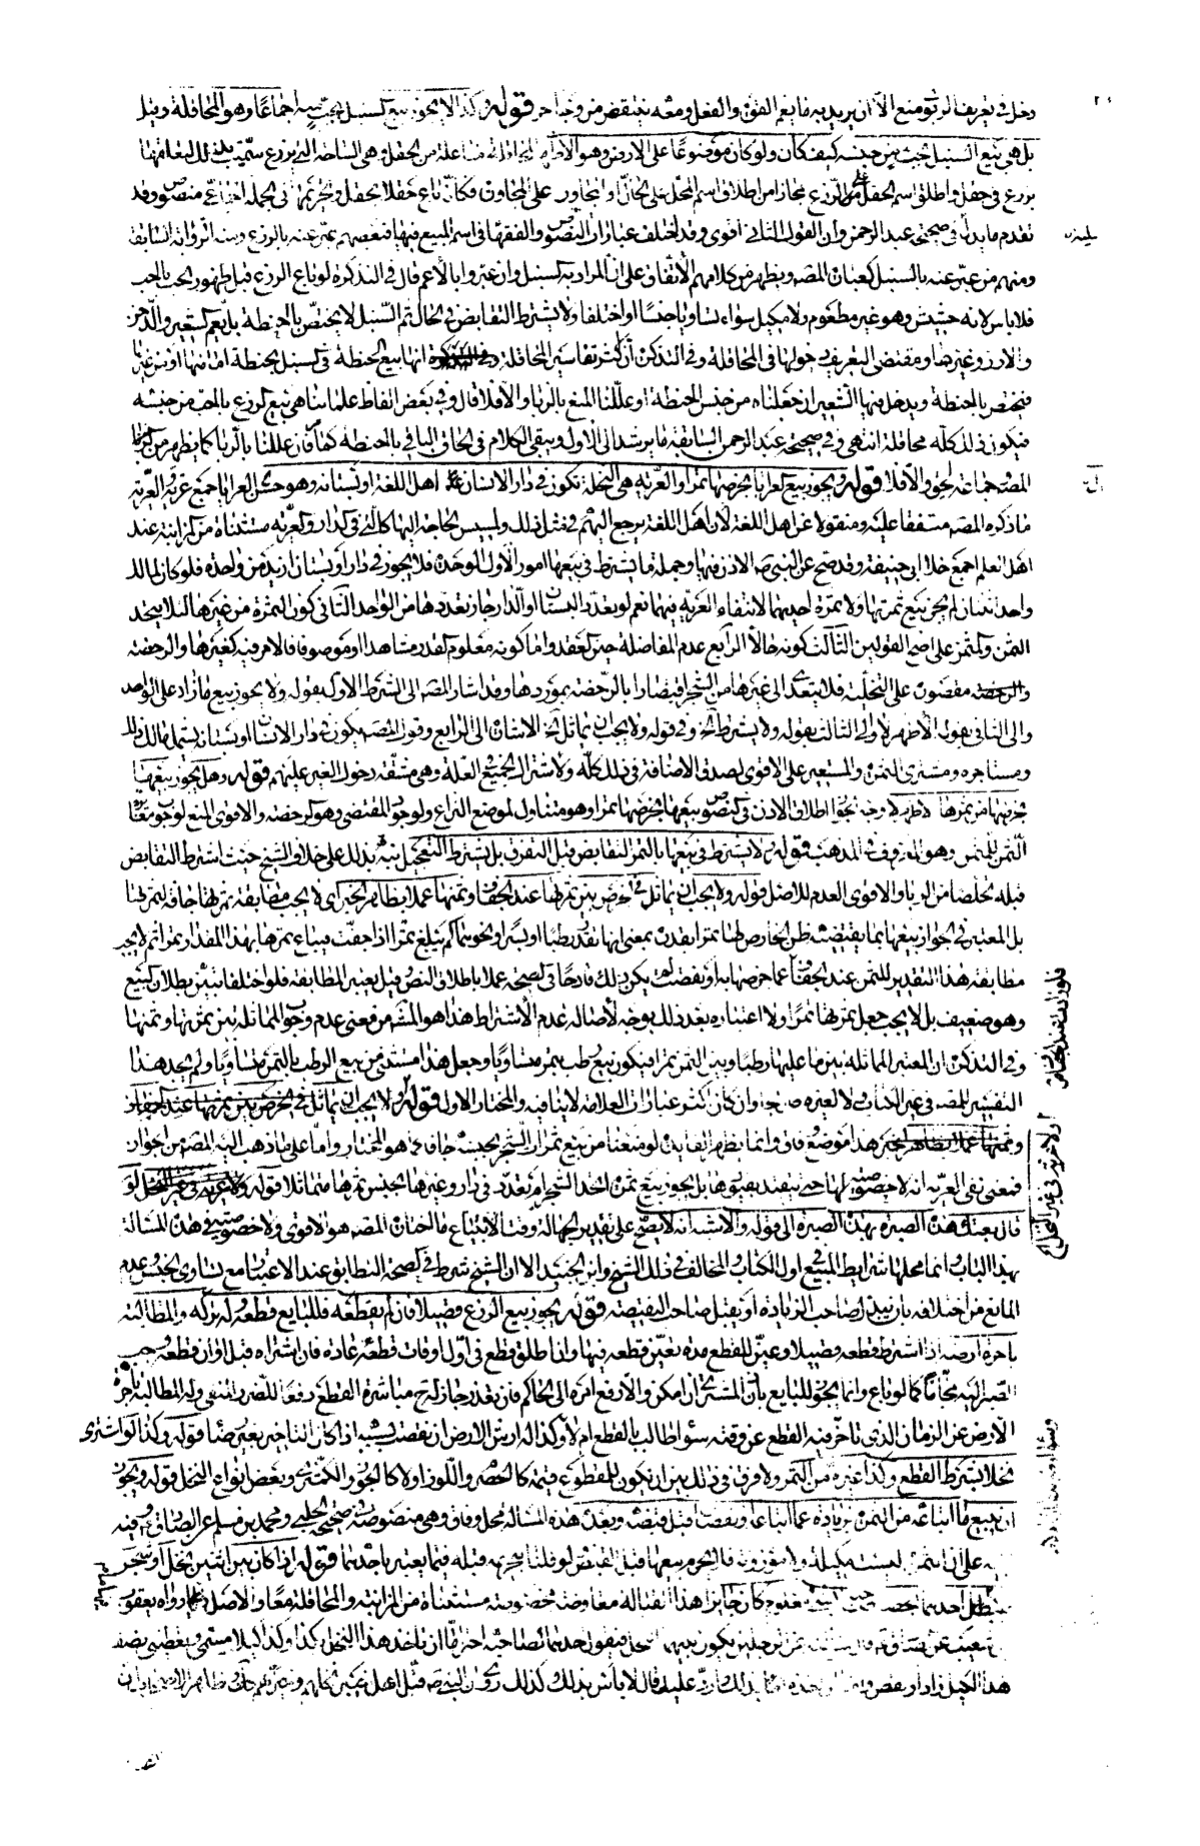 دخل في تعريف الربو منع الا ان يريد به ما يعم القوة والفعل ومثله ينتقض من وجه اخر قوله وكذا لا يجوز بيع السنبل بحب منه اجماعا وهو المحاقلة وقيل
بل هي بيع السنبل بحب من جنسه كيف كان ولو كان موضوعا على الارض وهو الاظهر المحاقلة مفاعلة من الحقل وهي الساحة التي يزرع سميت بذلك لتعلقها
بزرع في حقل واطلق اسم الحقل على الزرع مجازا من اطلاق اسم المحل على الحال او المجاور على المجاور فكانه باع حقلا بحقل وتحريمها في الجملة اجماعي منصوص وقد
تقدم ما يدل في صحيحتي عبد الرحمن وان القول الثاني اقوى وقد اختلف عبارات النصوص والفقهاء في اسم المبيع فيها فبعضهم عبر عنه بالزرع ومنه الرواية السابقة
ومنهم من عبر عنه بالسنبل كعبارة المصه ويظهر من كلامهم الاتفاق على ان المراد به السنبل وان عبروا بالاعم قال في التذكرة لو باع الزرع قبل ظهور الحب بالحب
فلا باس لانه حشيش وهو غير مطعوم ولا مكيل سواء تساويا جنسا او اختلفا ولا يشترط التقابض في الحال ثم السنبل لا يختص بالحنطة بل يعم الشعير والدخن
والارز وغيرها ومقتضى التعريف دخولها في المحاقلة وفي التذكرة ان اكثر تفاسير المحاقلة انها بيع الحنطة في السنبل بحنطة اما منها او من غيرها
فيختص بالحنطة ويدخل فيها الشعير ان جعلناه من جنس الحنطة او عللنا المنع بالربا والا فلا قال وفي بعض الفاظ علمائنا هي بيع الزرع بالحب من جنسه
فيكون ذلك كله محاقلة انتهى وفي صحيحة عبد الرحمن السابقة ما يرشد الى الاول ويبقى الكلام في الحاق الباقي بالحنطة كما مر فان عللنا بالربا كما يظهر من كلام
المصه وجماعة لحق والا فلا قوله ويجوز بيع العرايا بخرصها تمرا والعرية هي النخلة تكون في دار الانسان وقال اهل اللغة او بستانه وهو حسن العرايا جمع عرية والعرية
ما ذكره المصه متفقا عليه ومنقولا عن اهل اللغة لان اهل اللغة يرجع اليهم في مثل ذلك ولمسيس الحاجة اليها كالتي في الدار والعرية مستثناة من المزابنة عند
اهل العلم اجمع خلا ابي حنيفة وقد صح عن النبي صه الاذن فيها وجملة ما يشترط في بيعها امور الاول الوحدة فلا يجوز في دار او بستان ازيد من واحدة فلو كان لمالك
واحد اثنتان لم يجز بيع ثمرتهما ولا ثمرة احديهما لانتفاء العرية فيهما نعم لو تعدد البستان او الدار جاز تعددها من الواحد الثاني كون الثمرة من غيرها لئلا يتحد
الثمن والمثمن على اصح القولين الثالث كونه حالا الرابع عدم المفاضلة حين العقد واما كونه معلوم القدر مشاهدا او موصوفا فالامر فيه كغيرها والرخصة
مقصورة على النخلة فلا يتعدى الى غيرها من الشجر اقتصارا بالرخصة بموردها وقد اشار المصه الى الشرط الاول بقوله ولا يجوز بيع ما زاد على الواحدة
والى الثاني بقوله الاظهر لا والى الثالث بقوله ولا يشترط الخ وفي قوله ولا يجب ان يتماثل الخ الاشارة الى الرابع وقول المصه يكون في دار الانسان او بستانه يشمل مالك الدار
ومستاجره ومشترى الثمن والمستعير على الاقوى لصدق الاضافة في ذلك كله ولاشتراك الجميع العلة وهي مشقة دخول الغير عليهم قوله وهل يجوز بيعها
بخرصها من تمرها الاظهر لا وجه الجواز اطلاق الاذن في النصوص ببيعها بخرصها تمرا وهو متناول لموضع النزاع ولوجود المقتضى وهو الرخصة والاقوى المنع لوجوب مغايرة
الثمن للمثمن وهو المعروف في المذهب قوله ولا يشترط في بيعها بالتمر التقابض قبل التفرق بل يشترط التعجيل نبه بذلك على خلاف الشيخ حيث اشترط التقابض
قبله تخلصا من الربا والاقوى العدم للاصل قوله ولا يجب ان يتماثل في الخرص بين ثمرتها عند الجفاف وثمنها عملا بظاهر الخبر اى لا يجب مطابقة ثمرتها جافة لثمرتها
بل المعتبر في الجواز بيعها بما يقتضيه ظن الخارص لها تمرا بقدره بمعنى انها تقدر رطبا او بسرا ونحوهما كم يبلغ تمرا اذا جفت فيباع ثمرها بهذا المقدار تمرا ثم لا يجب
مطابقة هذا التقدير للثمن عند الجفاف عما خرصها به او نقصت لم يكن ذلك قادحا في الصحة عملا باطلاق النص وقيل يعتبر المطابقة فلو اختلفا تبين بطلان البيع
وهو ضعيف بل لا يجب جعل ثمرها تمرا اولا اعتباره بعد ذلك بوجه لاصالة عدم الاشتراط هذا هو المشهور فمعنى عدم وجوب المماثلة بين ثمرتها وثمنها
وفي التذكرة ان المعتبر المماثلة بين ما عليها رطبا وبين الثمن تمرا فيكون بيع رطب بتمر متساويا وجعل هذا مستثنى من بيع الرطب بالتمر متساويا ولم يجد هذا
التفسير للمصه في غير الكتاب ولا لغيره صريحا وان كان اكثر عبارات العلامة لا ينافيه والمختار الاول قوله ولا عرية في غير النخل الخ
هذا موضع وفاق وانما يظهر الفايدة لو منعنا من بيع ثمرات الشجر بجنسه جافا كما هو المختار واما على ما ذهب اليه المصه من الجواز
فمعنى نفي العرية انه لا خصوصية لها حتى يتقيد بقيودها بل يجوز بيع ثمرة احد الشجر ولم تعدد في دار وغيرها بجنس ثمرها متماثلا قوله لو
قال بعتك هذه الصبرة بهذه الصبرة الى قوله والاشبه انه لا يصح على تقدير الجهالة وقت الابتياع ما اختاره المصه هو الاقوى ولا خصوصية في هذه المسالة
بهذا الباب وانما محلها شرايط المبيع اول الكتاب والمخالف في ذلك الشيخ وابن الجنيد الا ان الشيخ شرط في الصحة التطابق عند الاعتبار مع تساوى الجنس وعدم
المانع من اختلافه بان يبذل صاحب الزيادة او يقبل صاحب النقيصة قوله يجوز بيع الزرع قصيلا فان لم يقطعه فللبايع قطعه وله تركه والمطالبة
باجرة ارضه اذا اشترط قطعه قصيلا وعين للقطع مدة تعين قطعه فيها وان اطلق قطع في اول اوقات قطعه عادة فان اشتراه قبل اوان قطعه وجب
الصبر اليه مجانا كما لو باع وانما يجوز للبايع باذن المشتري ان امكن والا رفع امره الى الحاكم فان تعذر جاز له ح مباشرة القطع دفعا للضرر المنفي وله المطالبة باجرة
الارض عن الزمان الذي تاخر فيه القطع عن وقته سواء طالب بالقطع ام لا وكذا له ارش الارض ان نقصت بسببه اذا كان التاخير بغير رضاه قوله وكذا لو اشترى
نخلا بشرط القطع وكذا غيره من الثمر ولا فرق في ذلك بين ان يكون للمقطوع قيمة كالحصرم واللوز اولا كالجوز والكمثرى وبعض انواع النخل قوله ويجوز
ان يبيع ما ابتاعه من الثمن بزيادة عما ابتاعه ونقصان قبل قبضه وبعده هذه المسالة محل وفاق وهي منصوصة في صحيح الحلبي ومحمد بن مسلم عن الصادق وفيه
تنبيه على ان الثمرة ليست مكيلة ولا موزونة فلا يحرم بيعها قبل القبض لو قلنا بتحريمه قبله فيما يعتبر باحدهما قوله اذا كان بين اثنين نخل او شجر
فتقبل احدهما بحصة صاحبه بشيء معلوم كان جايزا هذا القبالة معاوضة مخصوصة مستثناة من المزابنة والمحاقلة معا والاصل فيها ما رواه يعقوب
بن شعيب عن الصادق قال سالته عن الرجلين يكون بينهما النخل فيقول احدهما لصاحبه اختر اما ان تاخذ هذا النخل بكذا وكذا كيلا مسمى وتعطيني نصف
هذا الكيل زاد او نقص واما ان اخذه انا بذلك وارد عليك قال لا باس بذلك وكذلك
فلو زادت عند الجفاف
ولا عرية في غير النخل